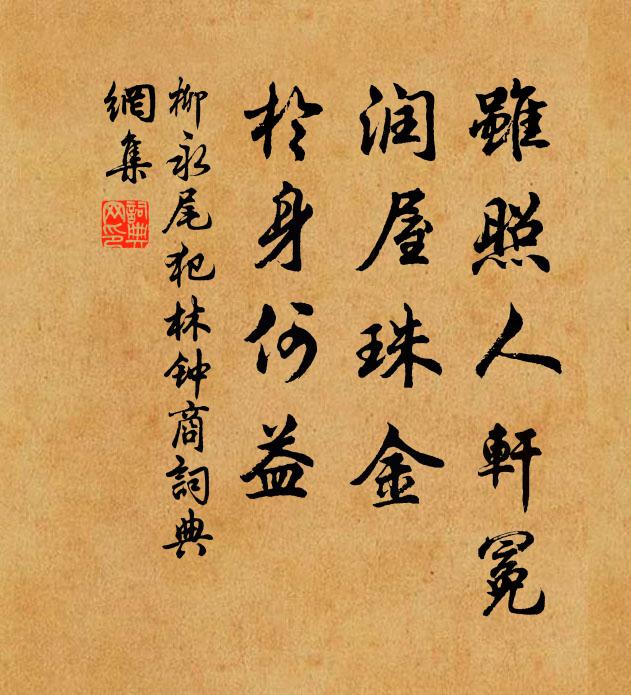 雖照人軒冕
润屋珠金
於身何益
柳永尾犯林钟商詞典
網集
詞典网印